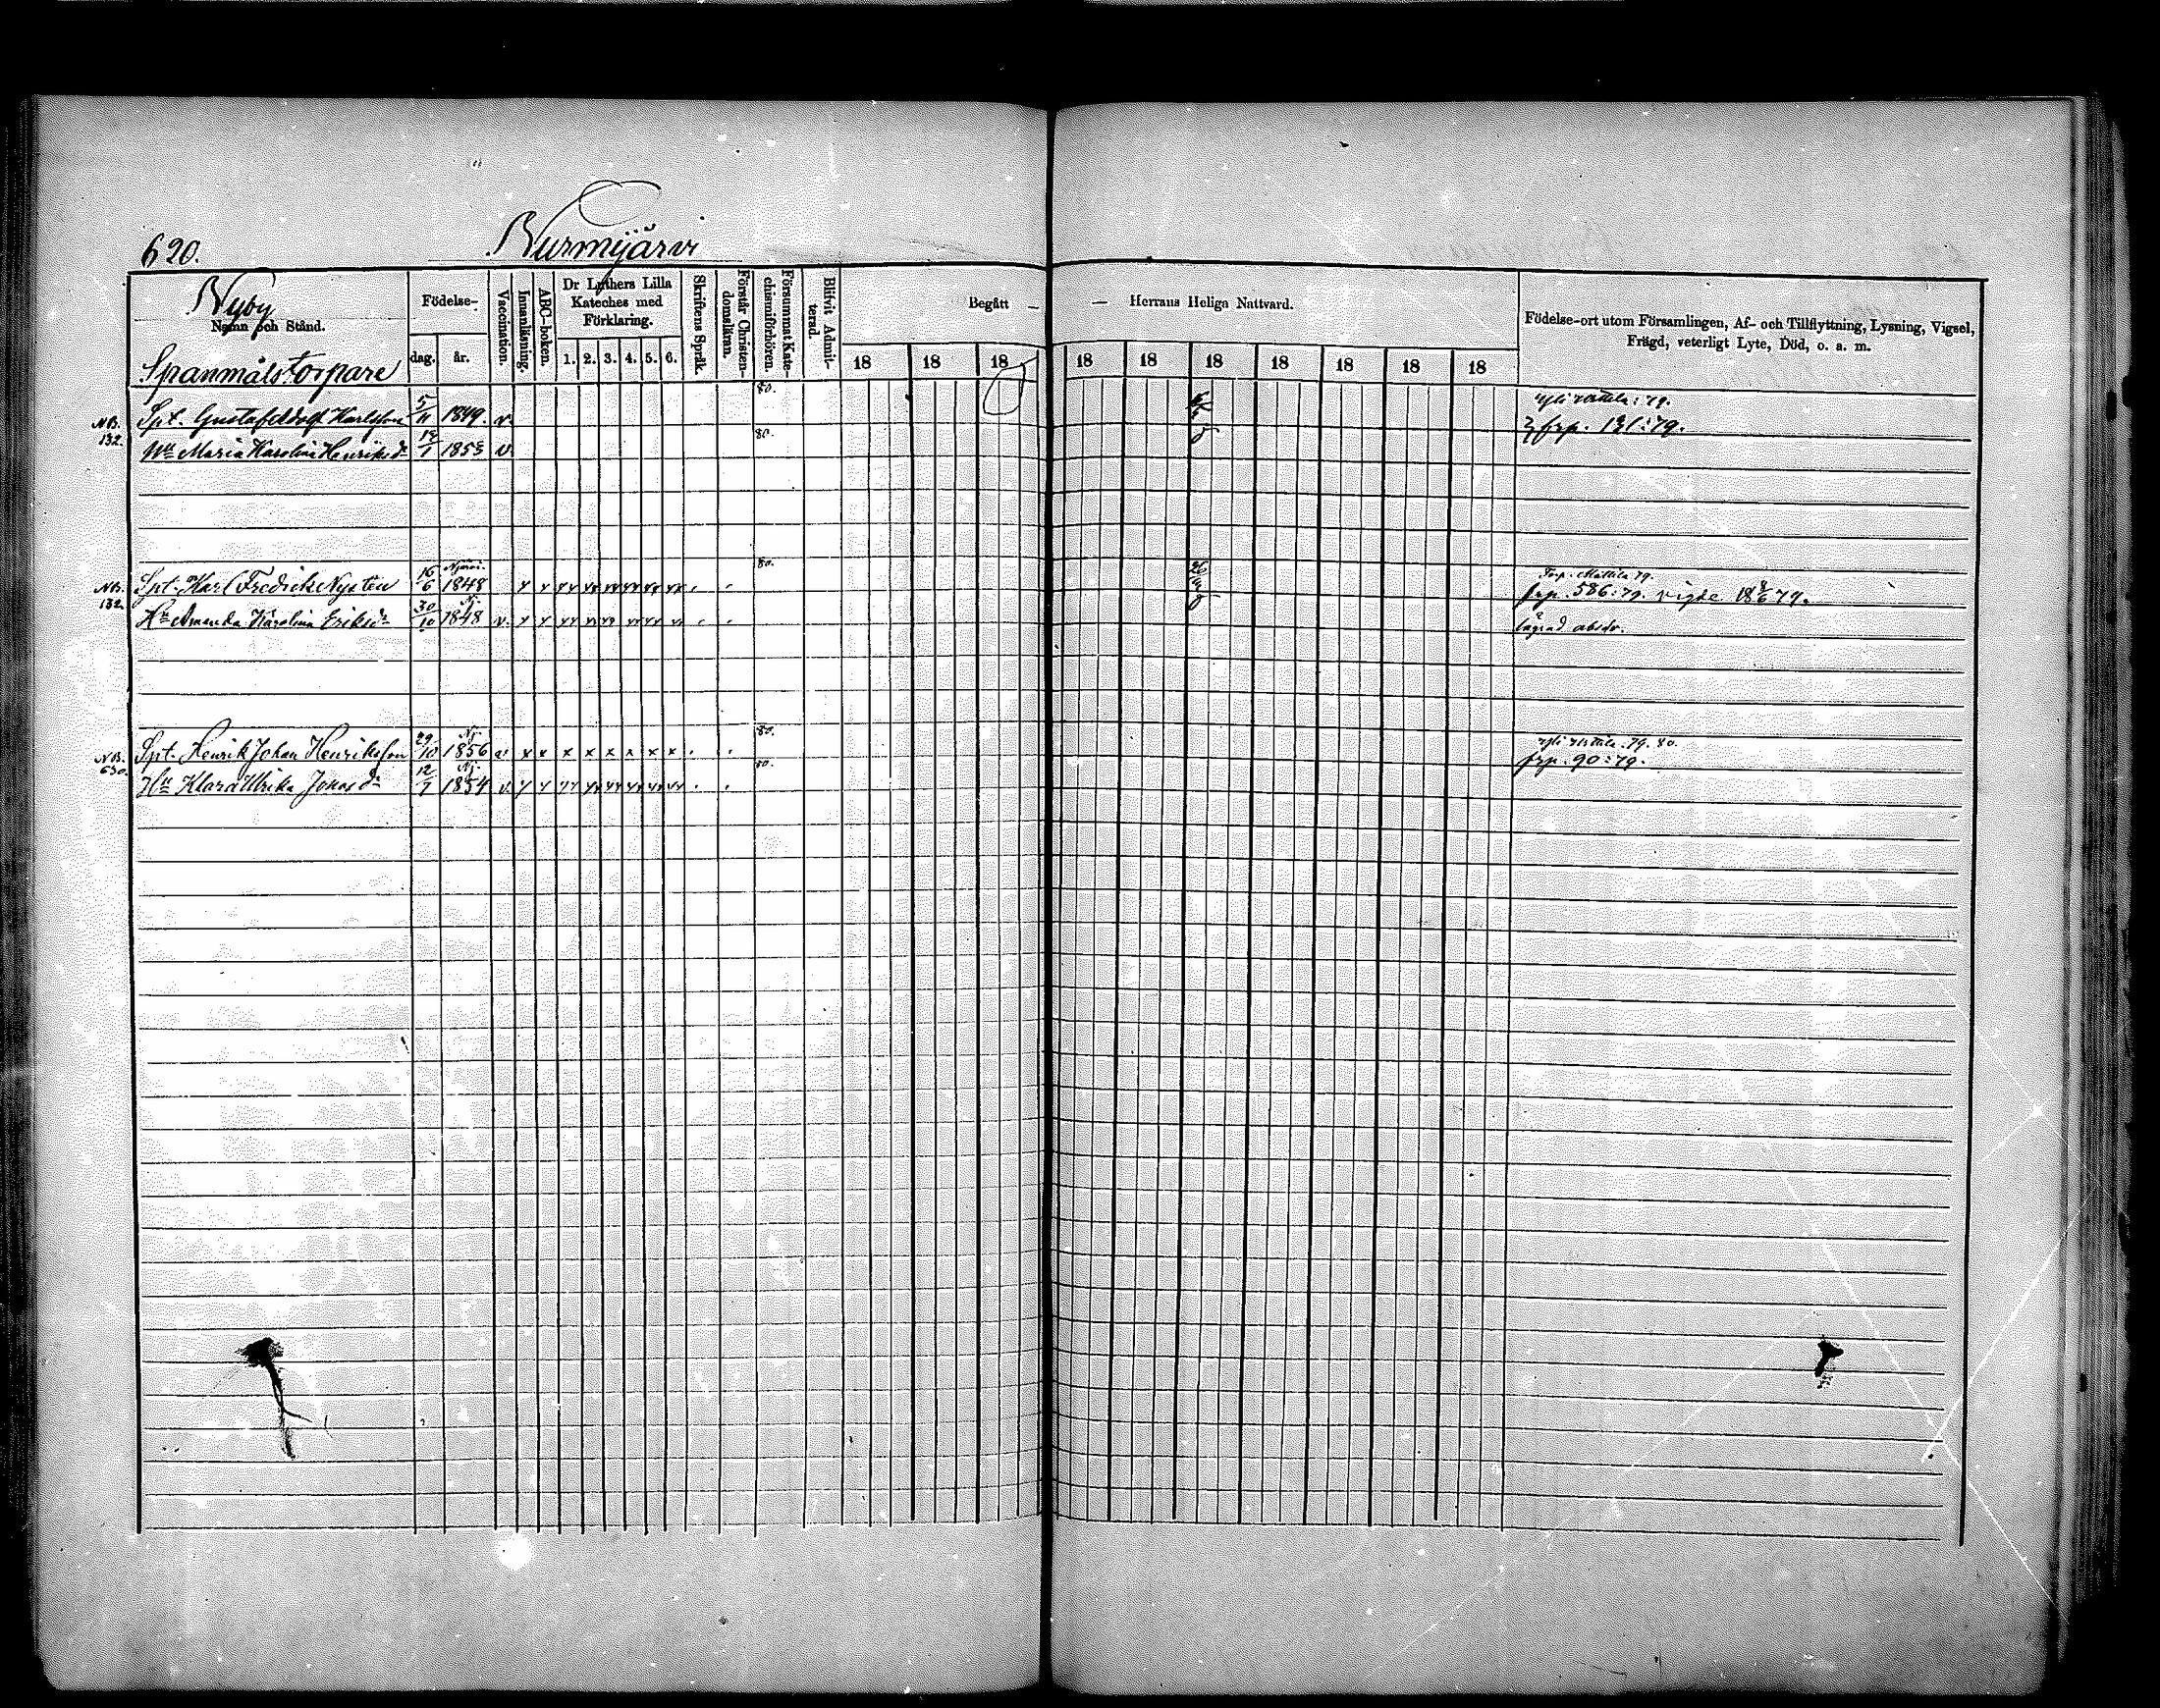 620.
Nurmijärvi
Nyby
Namn och Stånd.
Födelse-
dag. år.
Vaccination.
Innanläsning.
ABC-boken.
Dr Luthers Lilla
Kateches med
Förklaring.
1. 2. 3. 4. 5. 6.
Skriftens Språk.
Förstår Christen-
domsläran.
Försummat Kate-
chismiförhören.
Blifvit Admit-
terad.
Begått — — Herrans Heliga Nattvard.
18 18 18 18 18 18 18 18 18 18
Födelse-ort utom Församlingen, Af- och Tillflyttning, Lysning, Vigsel,
Frägd, veterligt Lyte, Död, o. a. m.
Spanmålstorpare
NB. 132. Spt. Gustaf Adolf Karlsson 5/11 1849. v. 80. :79.
frp. 131:79.
Hu Maria Karolina Henriksdr 1855 v. 80.
NB. 132. Spt. Karl Fredrick Nysten 16/6 1848 80. Torp. Mattila 79.
frp. 586:79. vigde 18 79.
Hu Amanda Karolina Eriksdr 30/10 Nj. 1848 v. lägrad absolv.
NB. 630. Spt. Henrik Johan Henriksson 29/10 Nj. 1856 v 80. 79. 80.
frp. 90:79.
Hu Klara Ulrika Johasdr 12/7 Nj. 1854 v. 80.